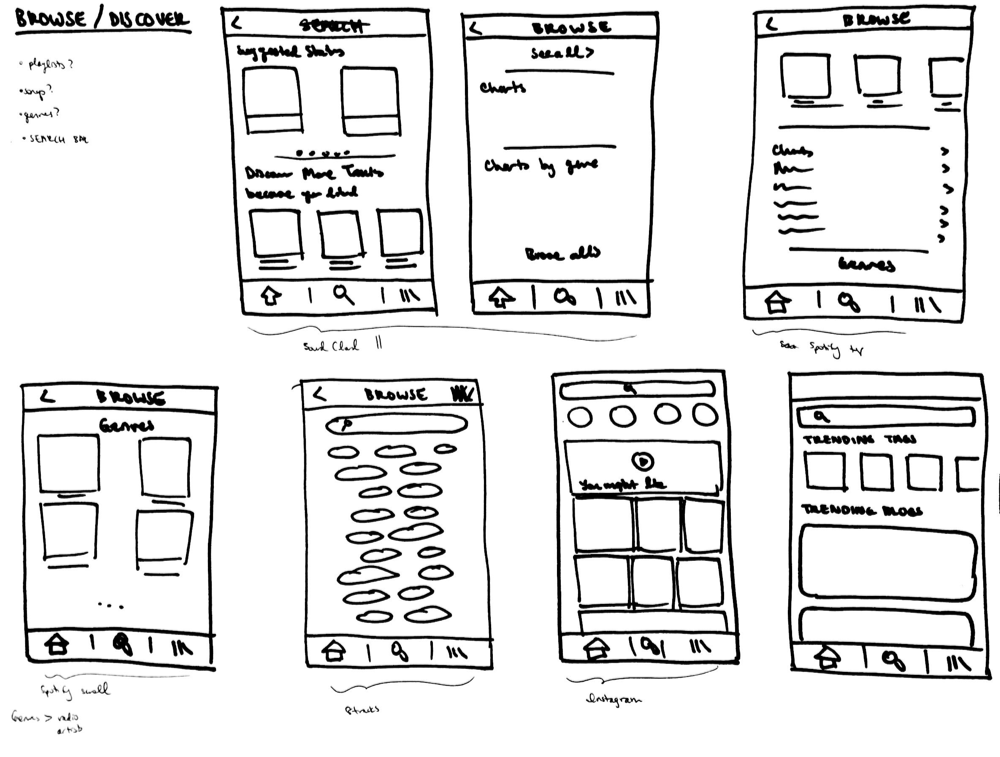 BROWSE / DISCOVER
• playlists?
• genres?
• SEARCH BAR
SEARCH
Suggested
Discover More Tracks
because you liked
BROWSE
See all >
Charts
Charts by genre
Browse all
BROWSE
Charts
Genres
Spotify
BROWSE
Genres
...
Spotify
Genres > radio
artists
BROWSE
Instagram
You might like
TRENDING TAGS
TRENDING BLOGS